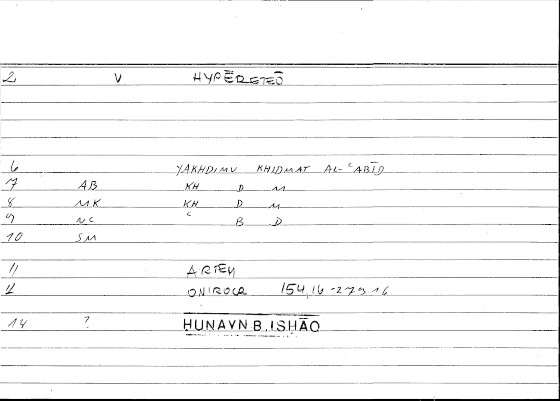 2 V HYPĒRETEŌ
6 YAKHDIMU KHIDMAT AL-ᶜABĪD
7 AB KH D M
8 MK KH D M
9 NC ᶜ B D
10 SM
11 ARTEM
12 ONIROCR 154,16-279,16
14 ? ḤUNAYN B. ISḤĀQ